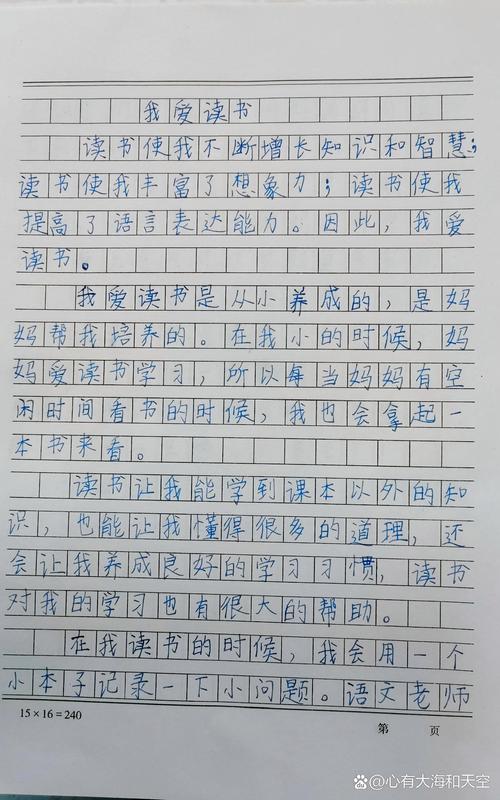 我爱读书
读书使我不断增长知识和智慧;
读书使我丰富了想象力;读书使我
提高了语言表达能力。因此,我爱
读书。
我爱读书是从小养成的,是妈
妈帮我培养的。在我小的时候,妈
妈爱读书学习,所以每当妈妈有空
闲时间看书的时候,我也会拿起一
本书来看。
读书让我能学到课本以外的知
识,也能让我懂得很多的道理,还
会让我养成良好的学习习惯,读书
对我的学习也有很大的帮助。
在我读书的时候,我会用一个
小本子记录一下小问题。语文老师
15×16=240
第 页
@心有大海和天空